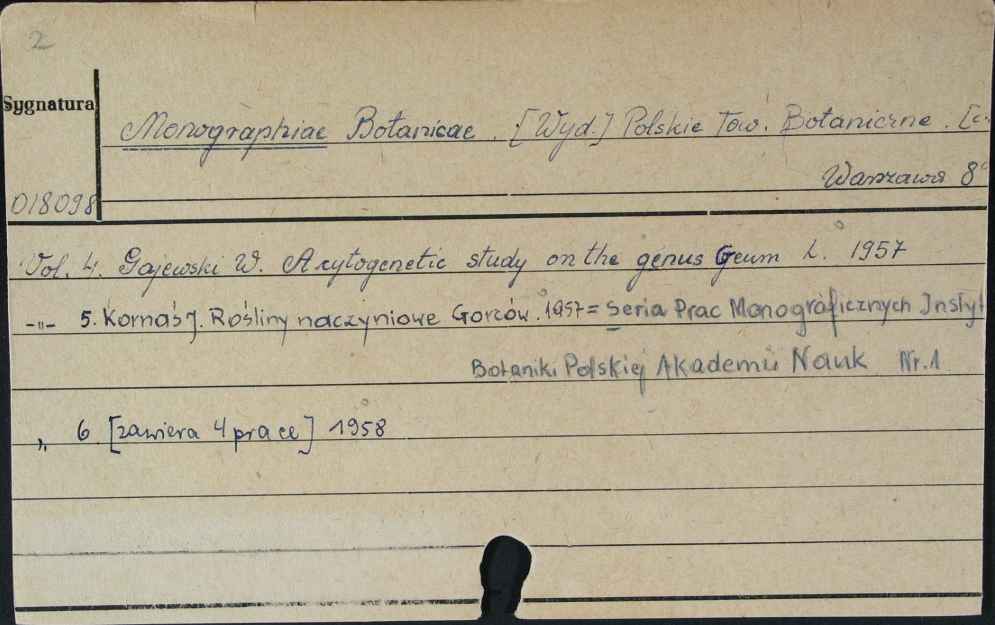 2
Sygnatura
Monographiae Botanicae. [Wyd.] Polskie Tow. Botaniczne. [
Warszawa 8°
018098
Vol. 4. Gajewski W. A cytogenetic study on the genus Geum L. 1957
-"- 5. Kornaś J. Rośliny naczyniowe Gorców. 1957 = Seria Prac Monograficznych Instyt
Botaniki Polskiej Akademii Nauk Nr. 1
„ 6 [zawiera 4 prace] 1958